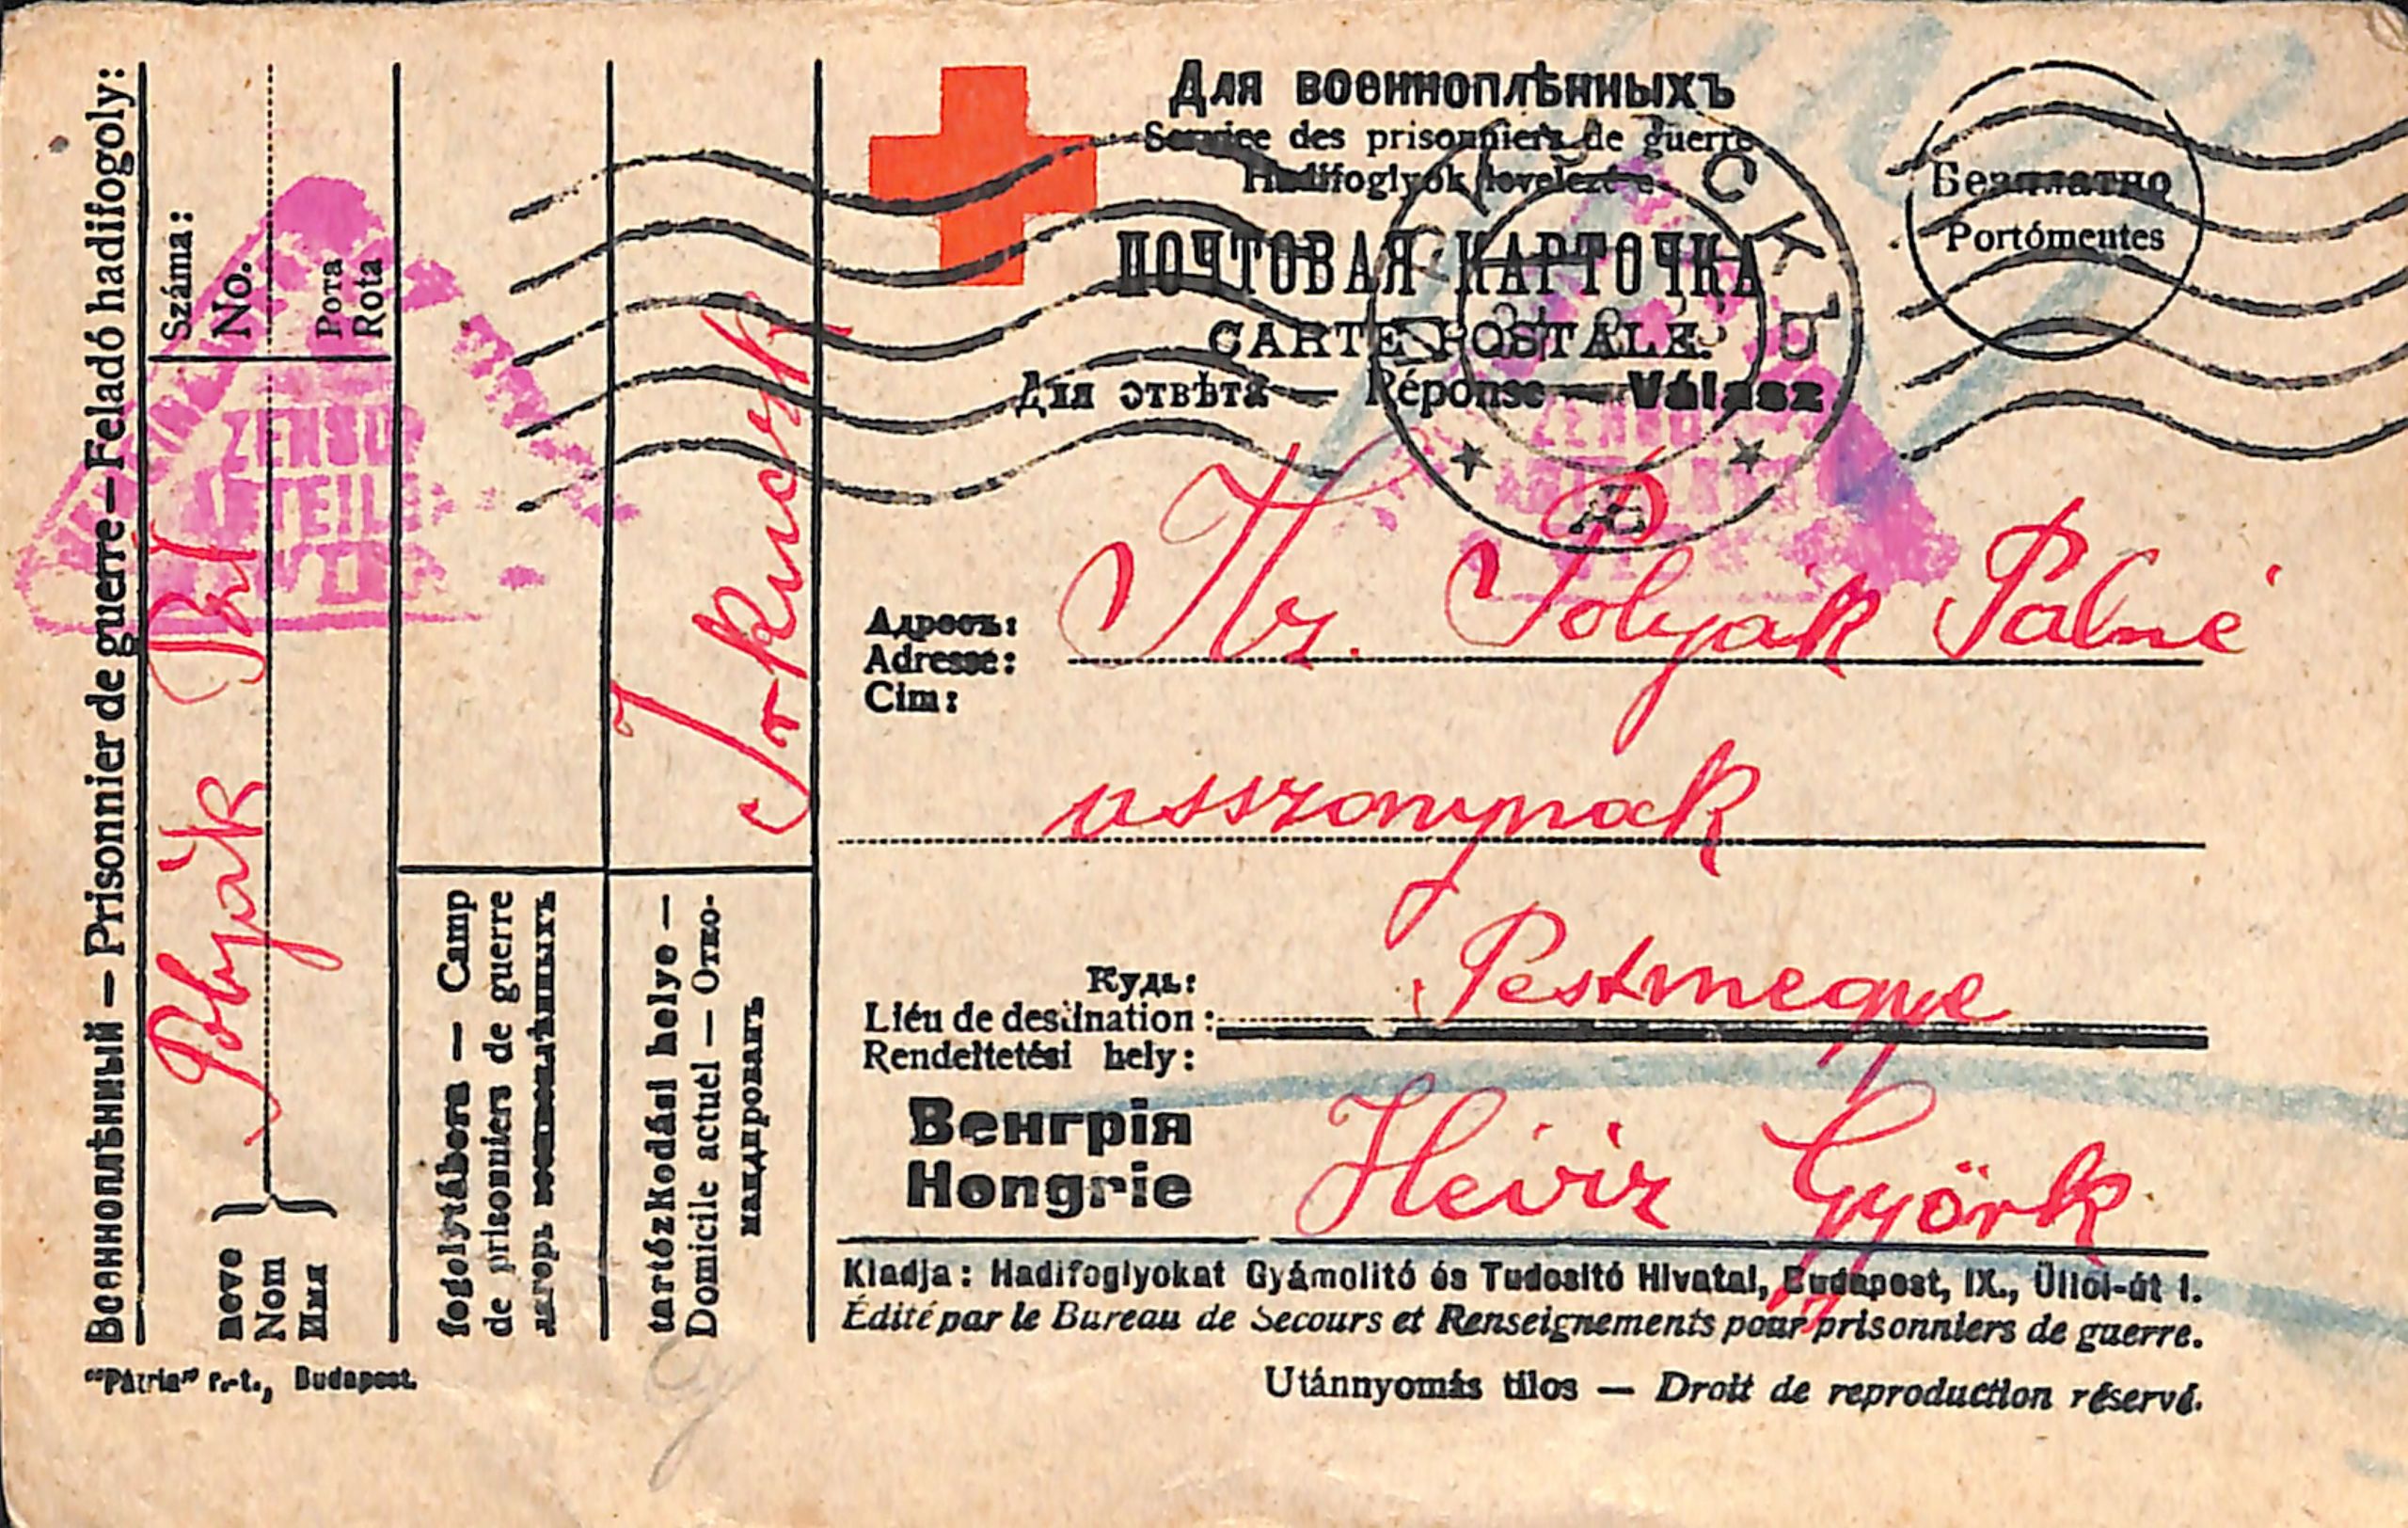 Военноплѣнный — Prisonnier de guerre — Feladó hadifogoly:
Száma:
No.
Рота
Rota
Polyák Pál
neve
Nom
Имя
fogolytábora — Camp
de prisonniers de guerre
лагерь военноплѣнныхъ
tartózkodási helye —
Domicile actuel — Отко-
мандированъ
Irkuczk
"Pátria" r.-t., Budapest.
ZENSUR
ABTEILUNG
Для военноплѣнныхъ
Service des prisonniers de guerre
Hadifoglyok levelezése
ПОЧТОВАЯ КАРТОЧКА
CARTE POSTALE.
Для отвѣта — Réponse — Válasz
Безплатно
Portómentes
ИРКУТСКЪ
ZENSUR
Адресъ:
Adresse:
Cim:
Nz. Polyák Pálné
usszonynak
Кудa:
Liéu de destination:
Rendeltetési hely:
Pestmegye
Венгрія
Hongrie
Héviz Györk
Kiadja: Hadifoglyokat Gyámolitó és Tudositó Hivatal, Budapest, IX., Üllői-út 1.
Édité par le Bureau de Secours et Renseignements pour prisonniers de guerre.
Utánnyomás tilos — Droit de reproduction réservé.